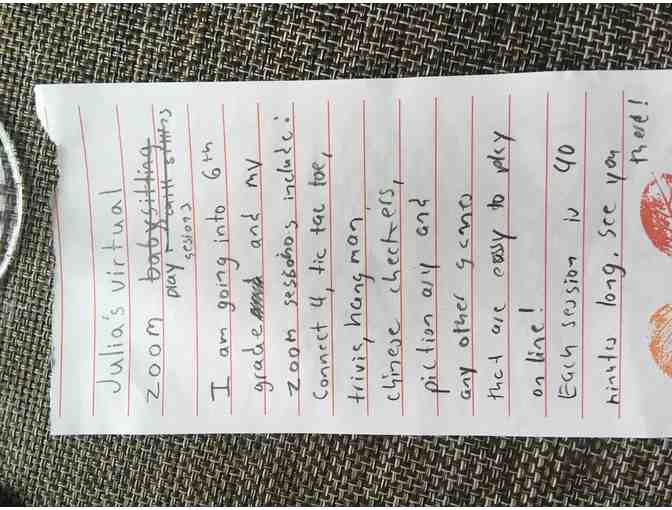 Julia's virtual
zoom babysitting
play with sittes
sesions
I am going into 6th
grade and and my
zoom sessions include:
Connect 4, tic tac toe,
trivis, hang man,
chinese checkers,
piction ary and
any other games
that are easy to play
on line!
Each session is 40
minutes long. See you
there!